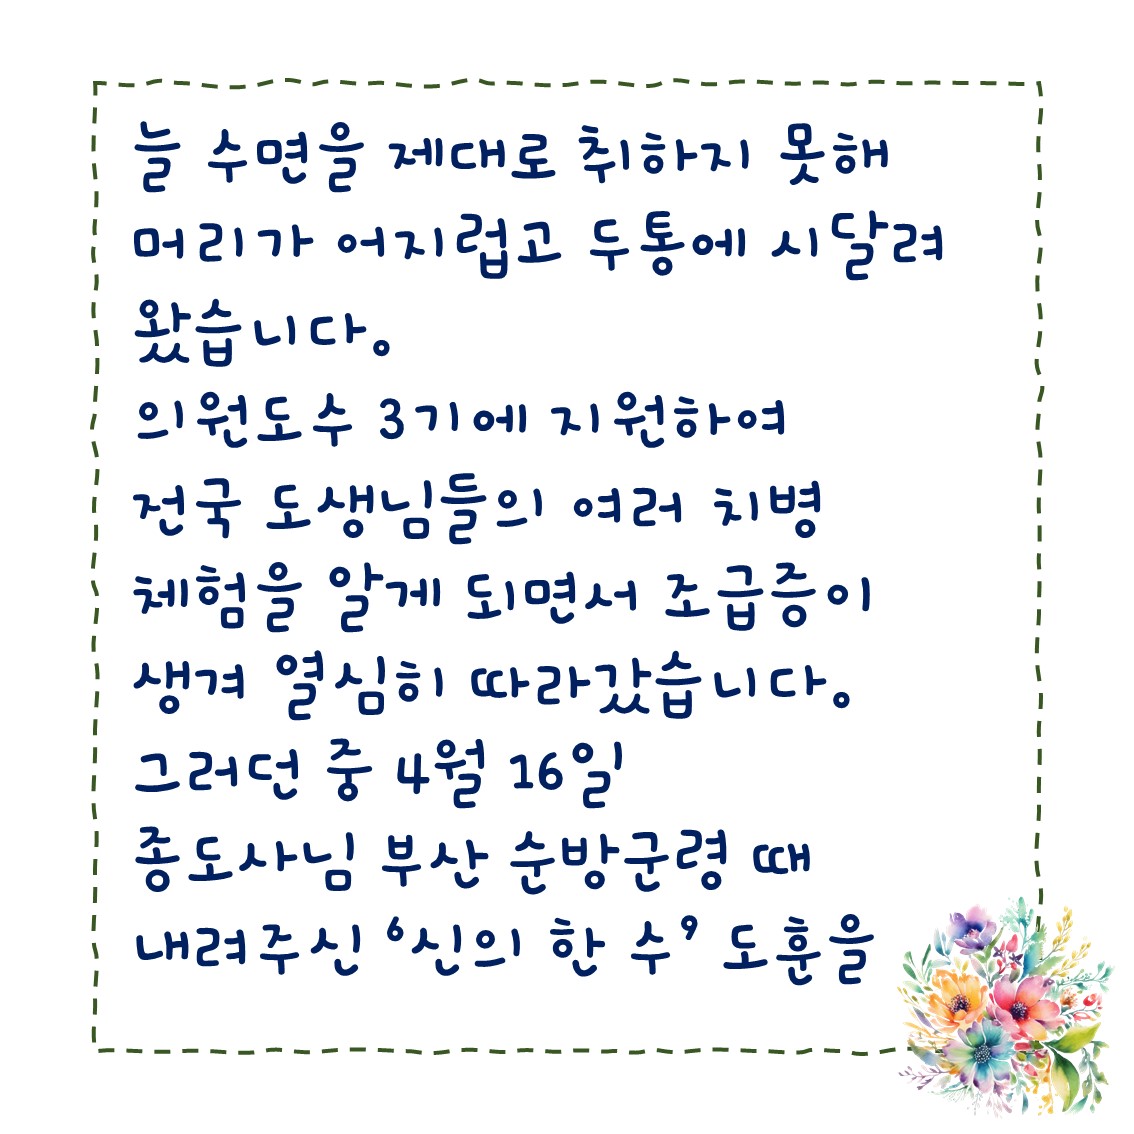 늘 수면을 제대로 취하지 못해
머리가 어지럽고 두통에 시달려
왔습니다.
의원도수 3기에 지원하여
전국 도생님들의 여러 치병
체험을 알게 되면서 조급증이
생겨 열심히 따라갔습니다.
그러던 중 4월 16일
종도사님 부산 순방군령 때
내려주신 ‘신의 한 수’ 도훈을